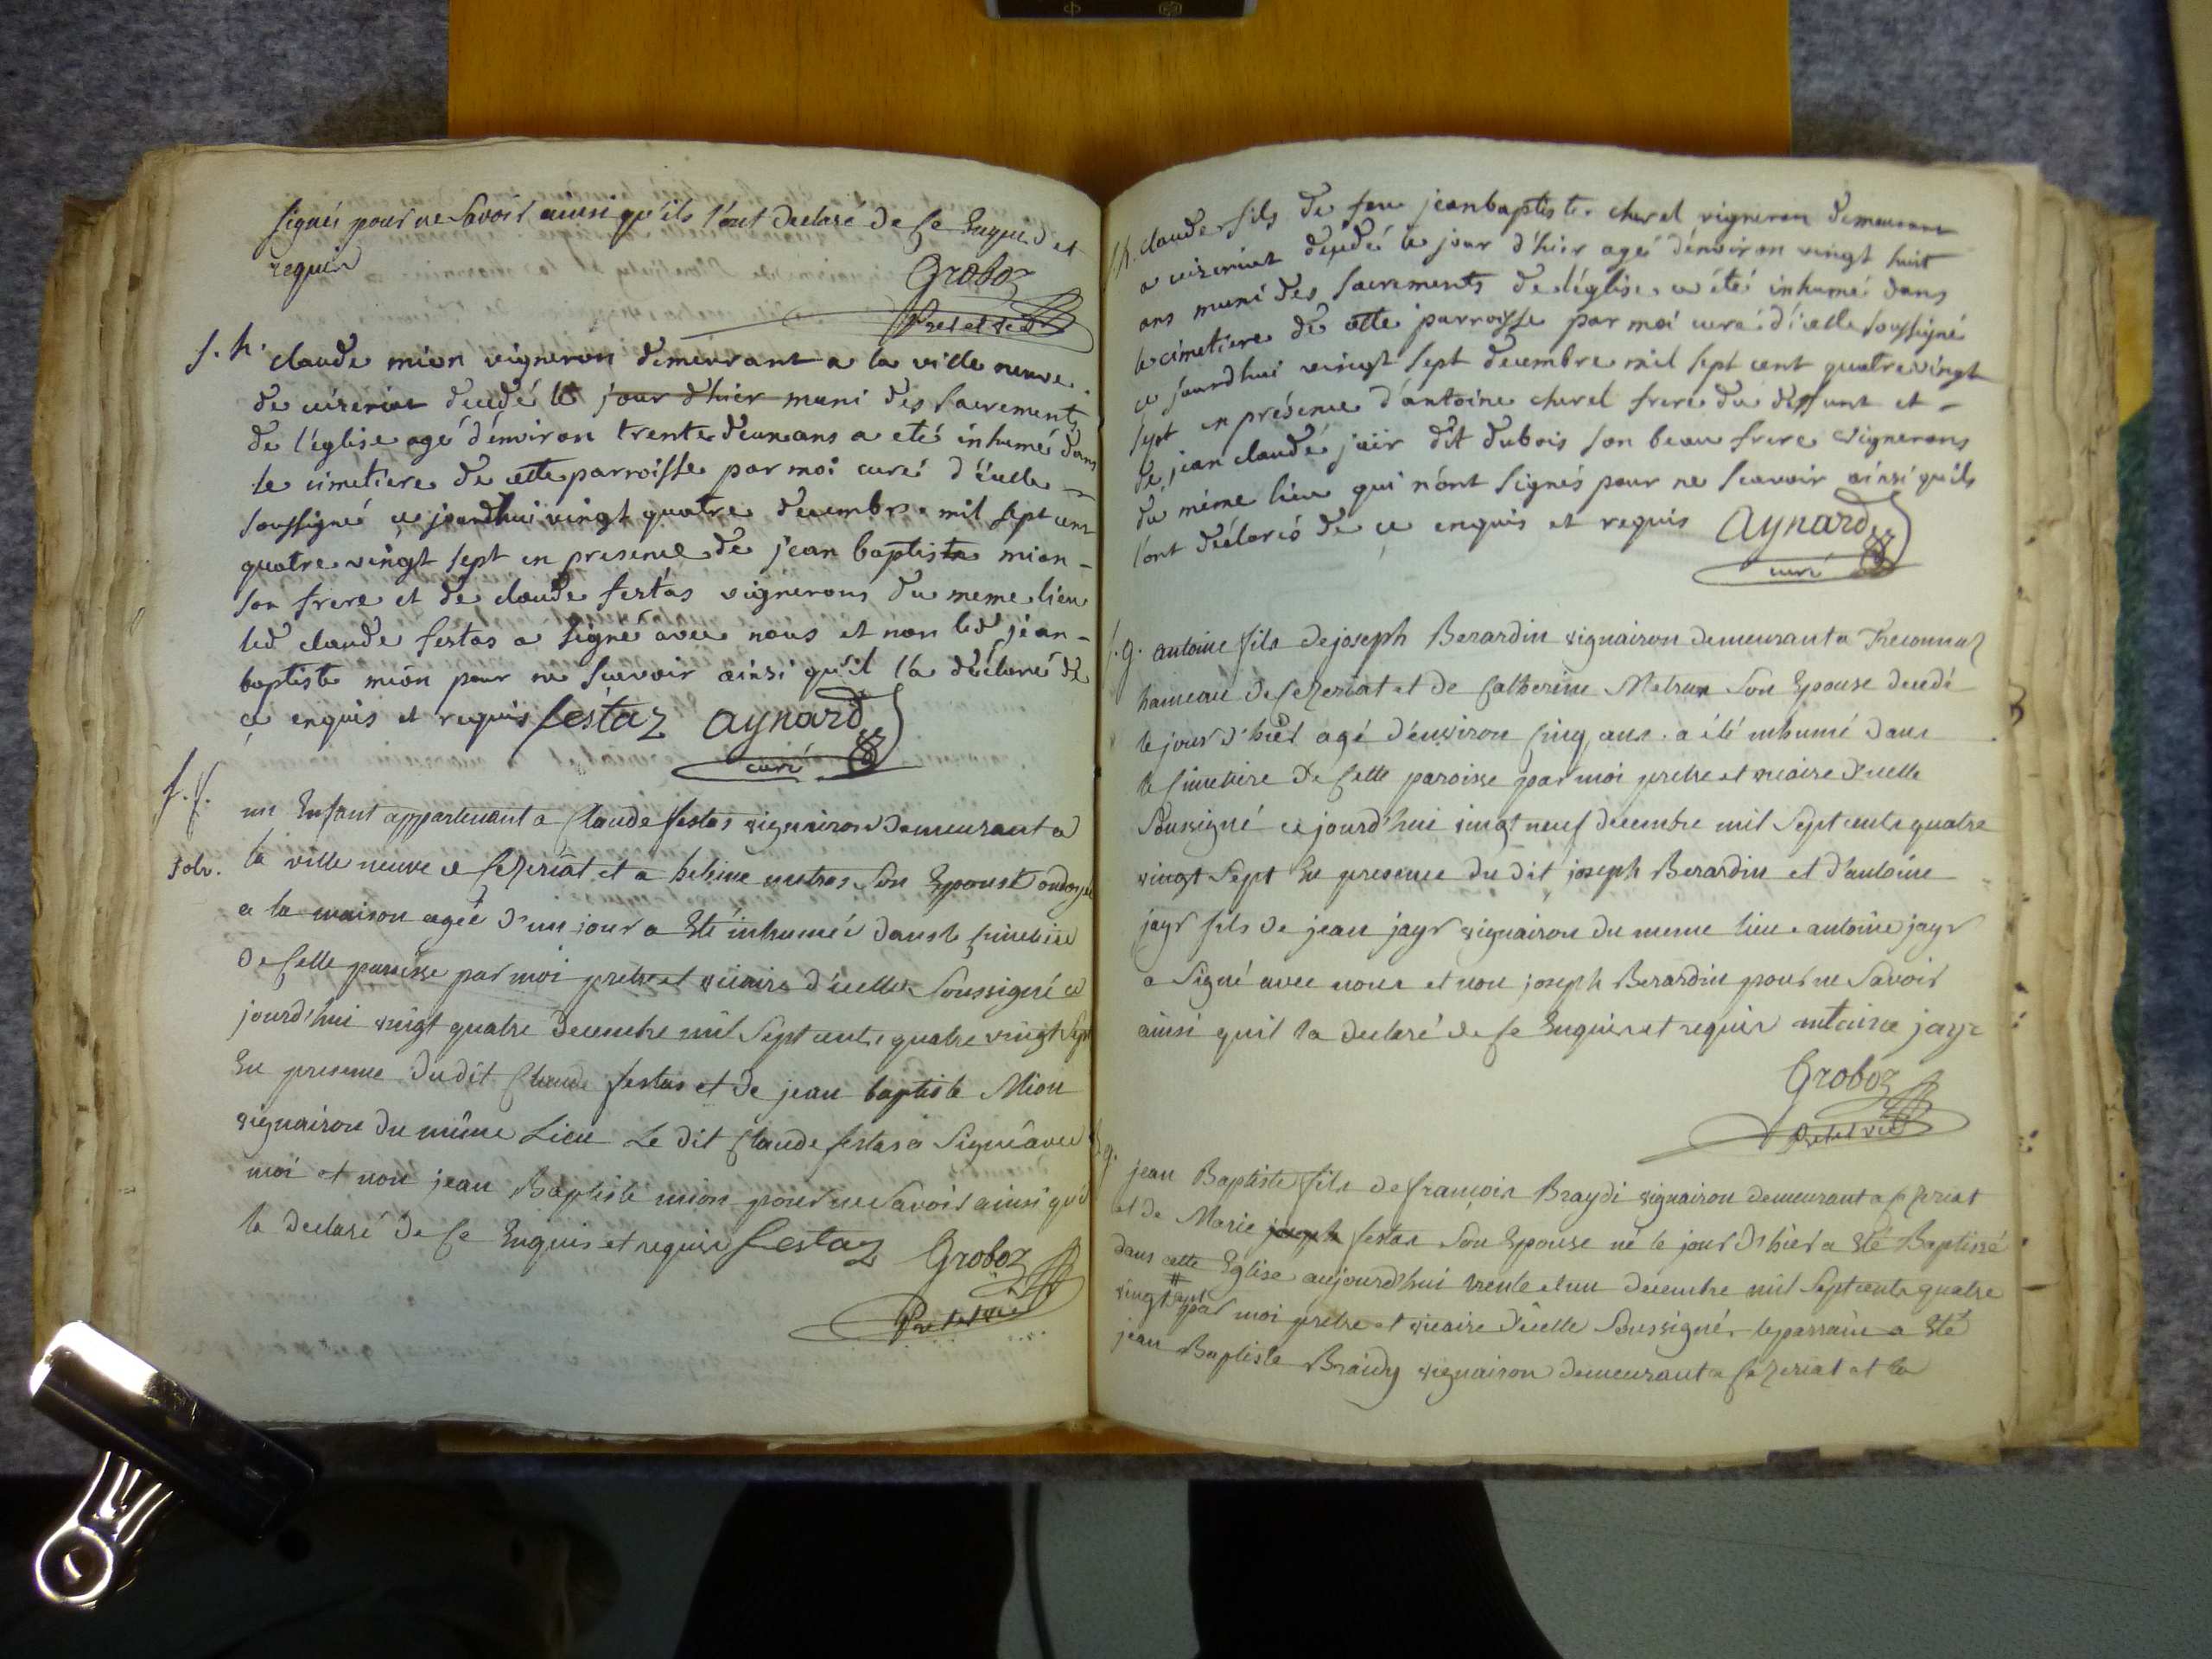 signés pour ne savoir ainsi qu'ils l'ont declaré de ce Enquis et
requis
Groboz
Pret et vic
s. h. claude mion vigneron demeurant a la ville neuve
de ceizeriat decedé le jour d'hier muni des sacrements
de l'église agé d'environ trente deux ans a eté inhumé dans
le cimetiere de cette parroisse par moi curé d'icelle
soussigné ce jourdhui vingt quatre decembre mil sept cent
quatre vingt sept en presence de jean baptiste mion
son frere et de claude festas vignerons du meme lieu
led claude festas a signé avec nous et non led jean
baptiste mion pour ne scavoir ainsi qu'il l'a déclaré de
ce enquis et requis festaz Aynard
curé
un Enfant appartenant a Claude festas vignairon demeurant a
la ville neuve de Cezeriat et a helene metras son Epouse ondoyé
a la maison agée d'un jour a Eté inhumée dans le cimetiere
de cette paroisse par moi pretre et vicaire d'icelle soussigné ce
jourd'hui vingt quatre decembre mil sept cents quatre vingt sept
En presence dudit Claude festas et de jean baptiste Mion
vignairon du même Lieu Le dit Claude festas a signé avec
moi et non jean Baptiste mion pour ne savoir ainsi qu'il
la declaré de ce Enquis et requis festaz Groboz
Pret et vic
s. h. claude fils de feu jean baptiste churel vigneron demeurant
a ceizeriat dejedé le jour d'hier agé d'environ vingt huit
ans muni des sacrements de l'église a été inhumé dans
le cimetiere de cette parroisse par moi curé d'icelle soussigné
ce jourdhui vingt sept decembre mil sept cent quatre vingt
sept en présence d'antoine churel frere du deffunt et
de jean claude jaïr dit dubois son beau frere vignerons
du même lieu qui n'ont signés pour ne scavoir ainsi qu'ils
l'ont déclarés de ce enquis et requis Aynard
curé
s. g. antoine fils de joseph Berardin vignairon demeurant a Treconnaz
hameau de Cezeriat et de Catherine Metras son Epouse decedé
le jour d'hier agé d'environ cinq ans a été inhumé dans
le cimetiere de cette paroisse par moi pretre et vicaire d'icelle
soussigné ce jourd'hui vingt neuf decembre mil sept cents quatre
vingt sept En presence du dit joseph Berardin et d'antoine
jayr fils de jean jayr vignairon du meme lieu antoine jayr
a signé avec nous et non joseph Berardin pour ne savoir
ainsi quil la declaré de ce Enquis et requis antoine jayr
Groboz
Pret et vic
jean Baptiste fils de françois Braydi vignairon demeurant a Cezeriat
et de Marie joseph festas son Epouse né le jour d'hier a Eté Baptisé
dans cette Eglise aujourd'hui trente et un decembre mil sept cents quatre
vingt sept par moi pretre et vicaire d'icelle soussigné le parrain a Eté
jean Baptiste Braidy vignairon demeurant a Cezeriat et la